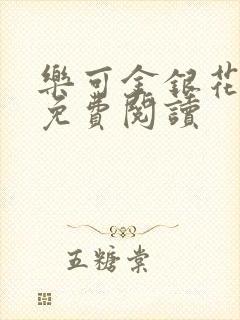 樂可金銀花
免費閱讀
五糖棠